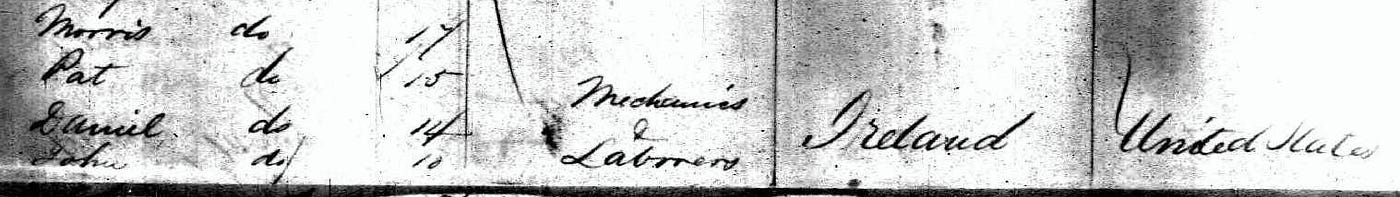 Morris do 17
Pat do 15
Mechanics
Daniel do 14 & Ireland United States
John do 10 Laborers